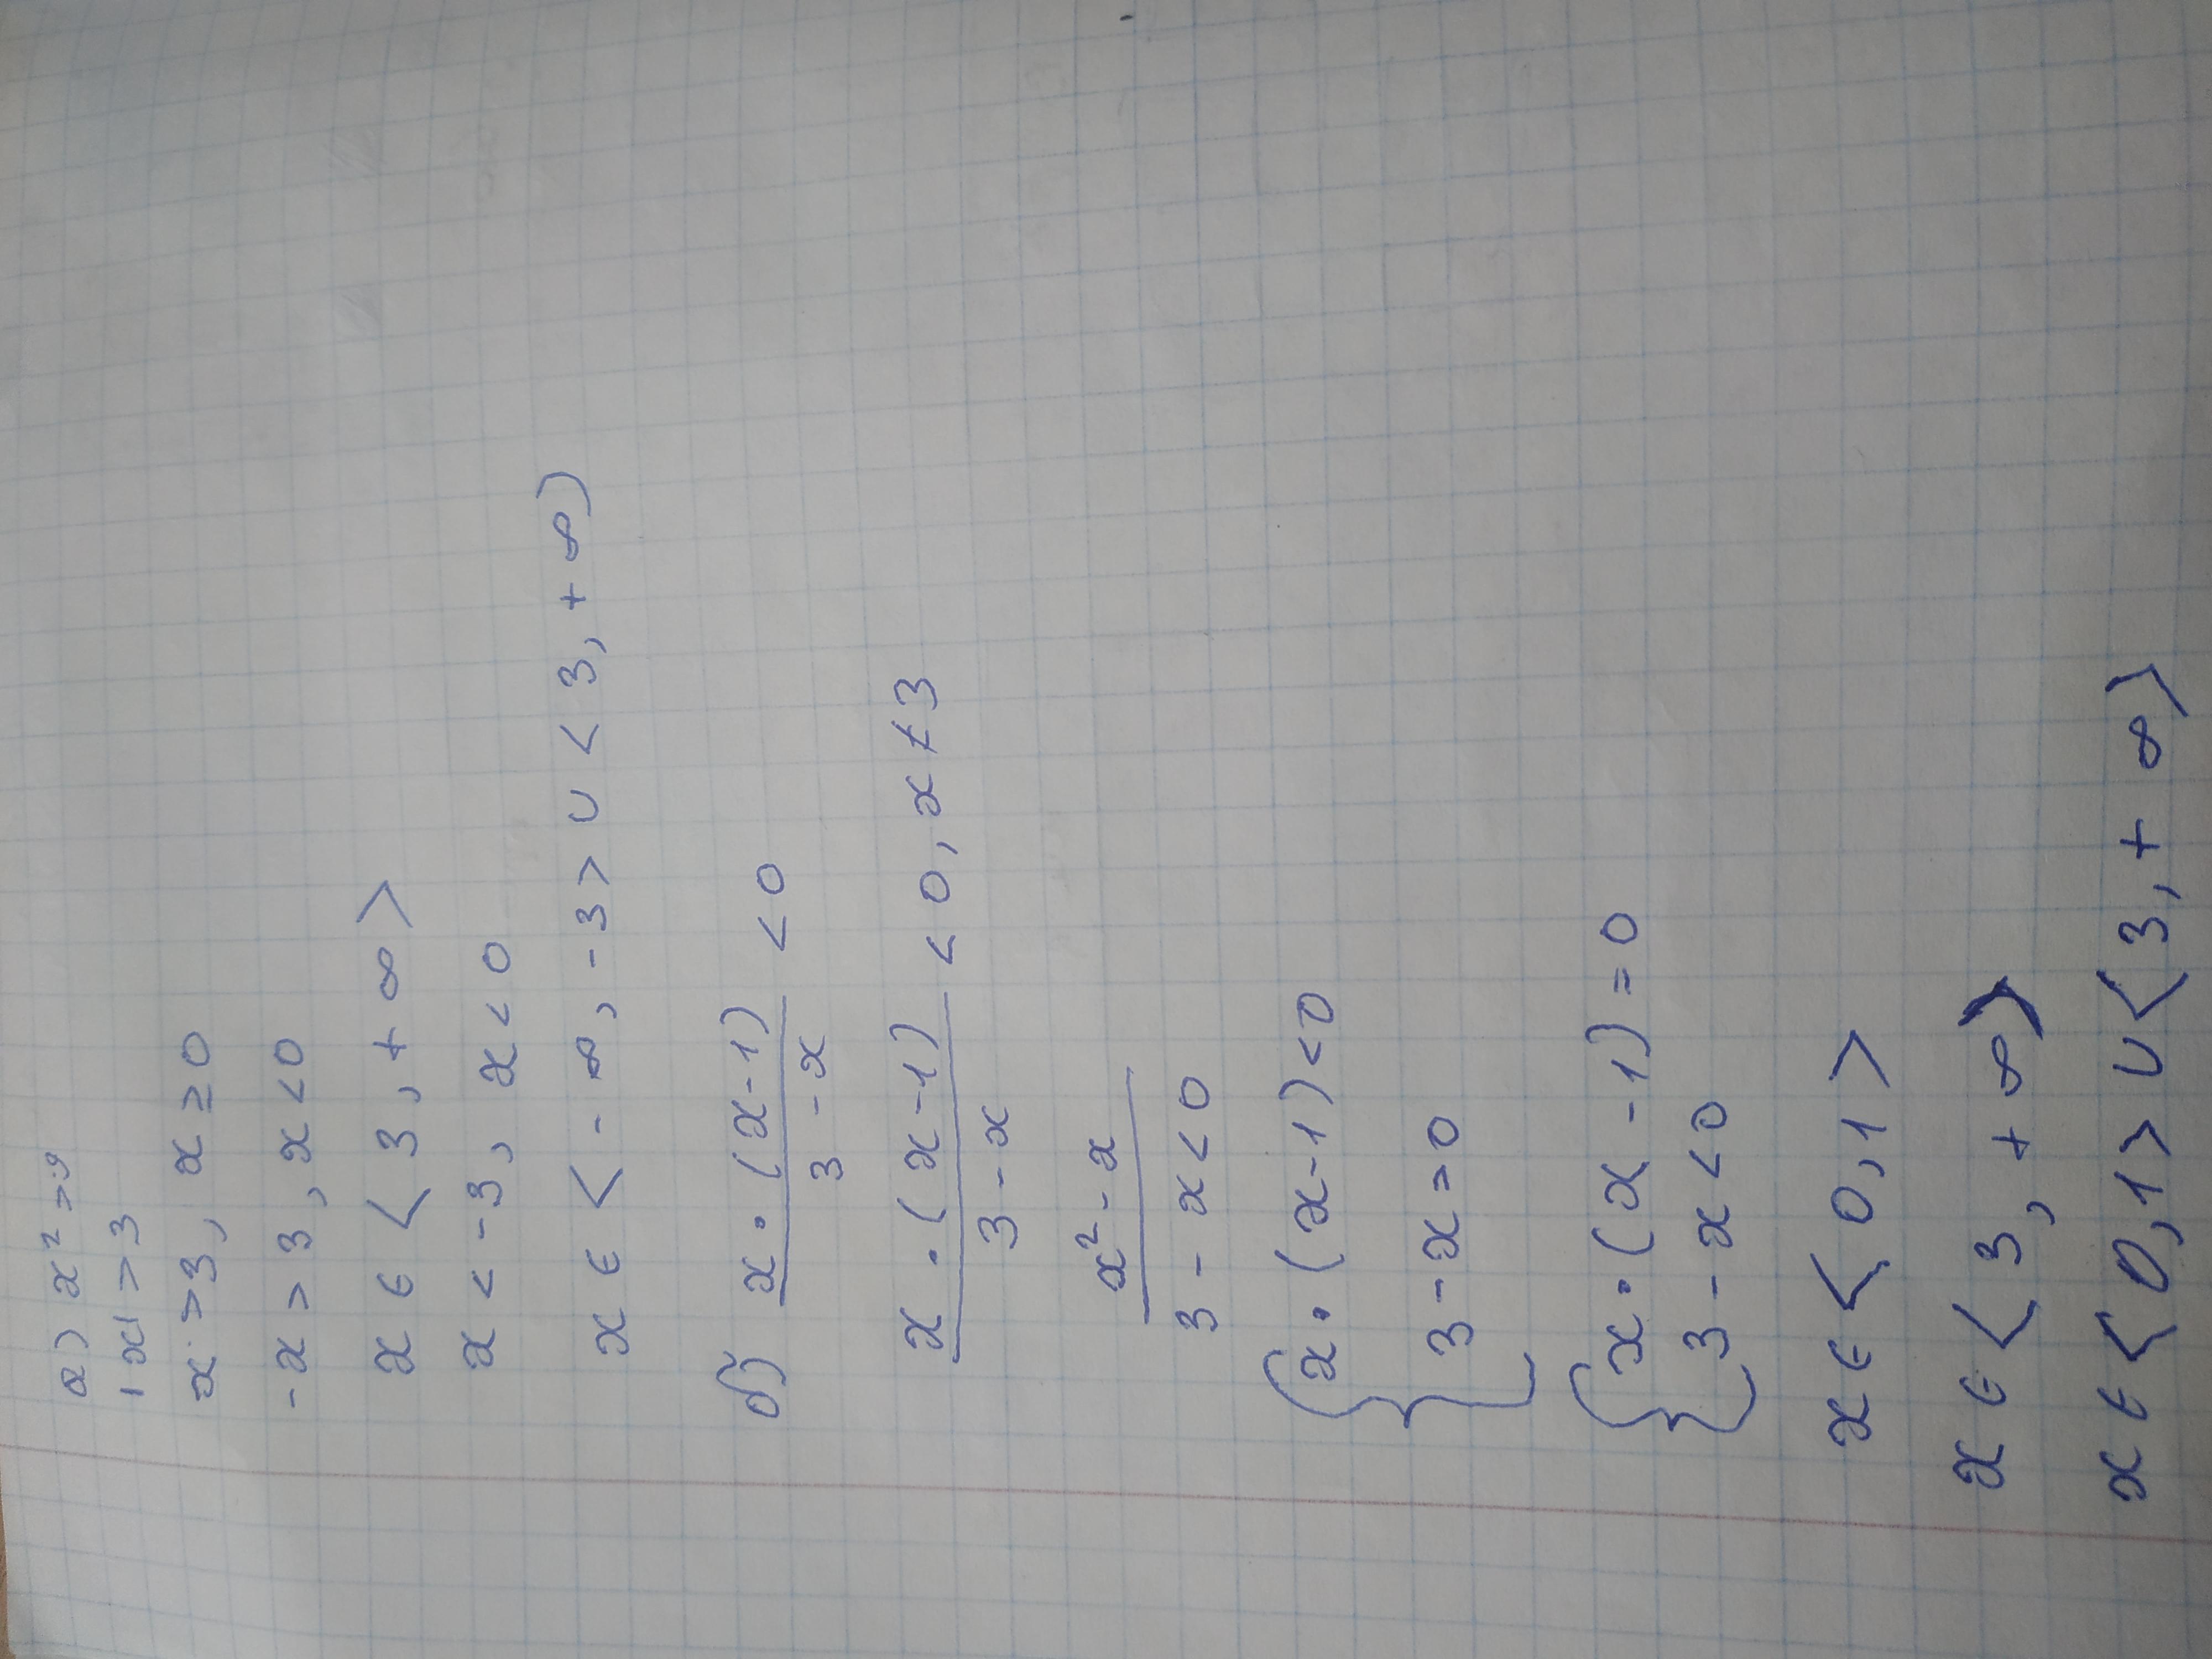 а) x² >9
|x| >3
x >3, x ≥ 0
-x > 3, x < 0
x ∈ < 3, + ∞ >
x < -3, x < 0
x ∈ < - ∞, -3 > ∪ < 3, + ∞)
б) x · (x-1) / 3 - x < 0
x · (x-1) / 3 - x < 0, x ≠ 3
x² - x
3 - x < 0
{ x · (x-1) < 0
3 - x = 0
{ x · (x - 1) = 0
3 - x < 0
x ∈ < 0, 1 >
x ∈ < 3, + ∞ >
x ∈ < 0, 1 > ∪ < 3, + ∞ >